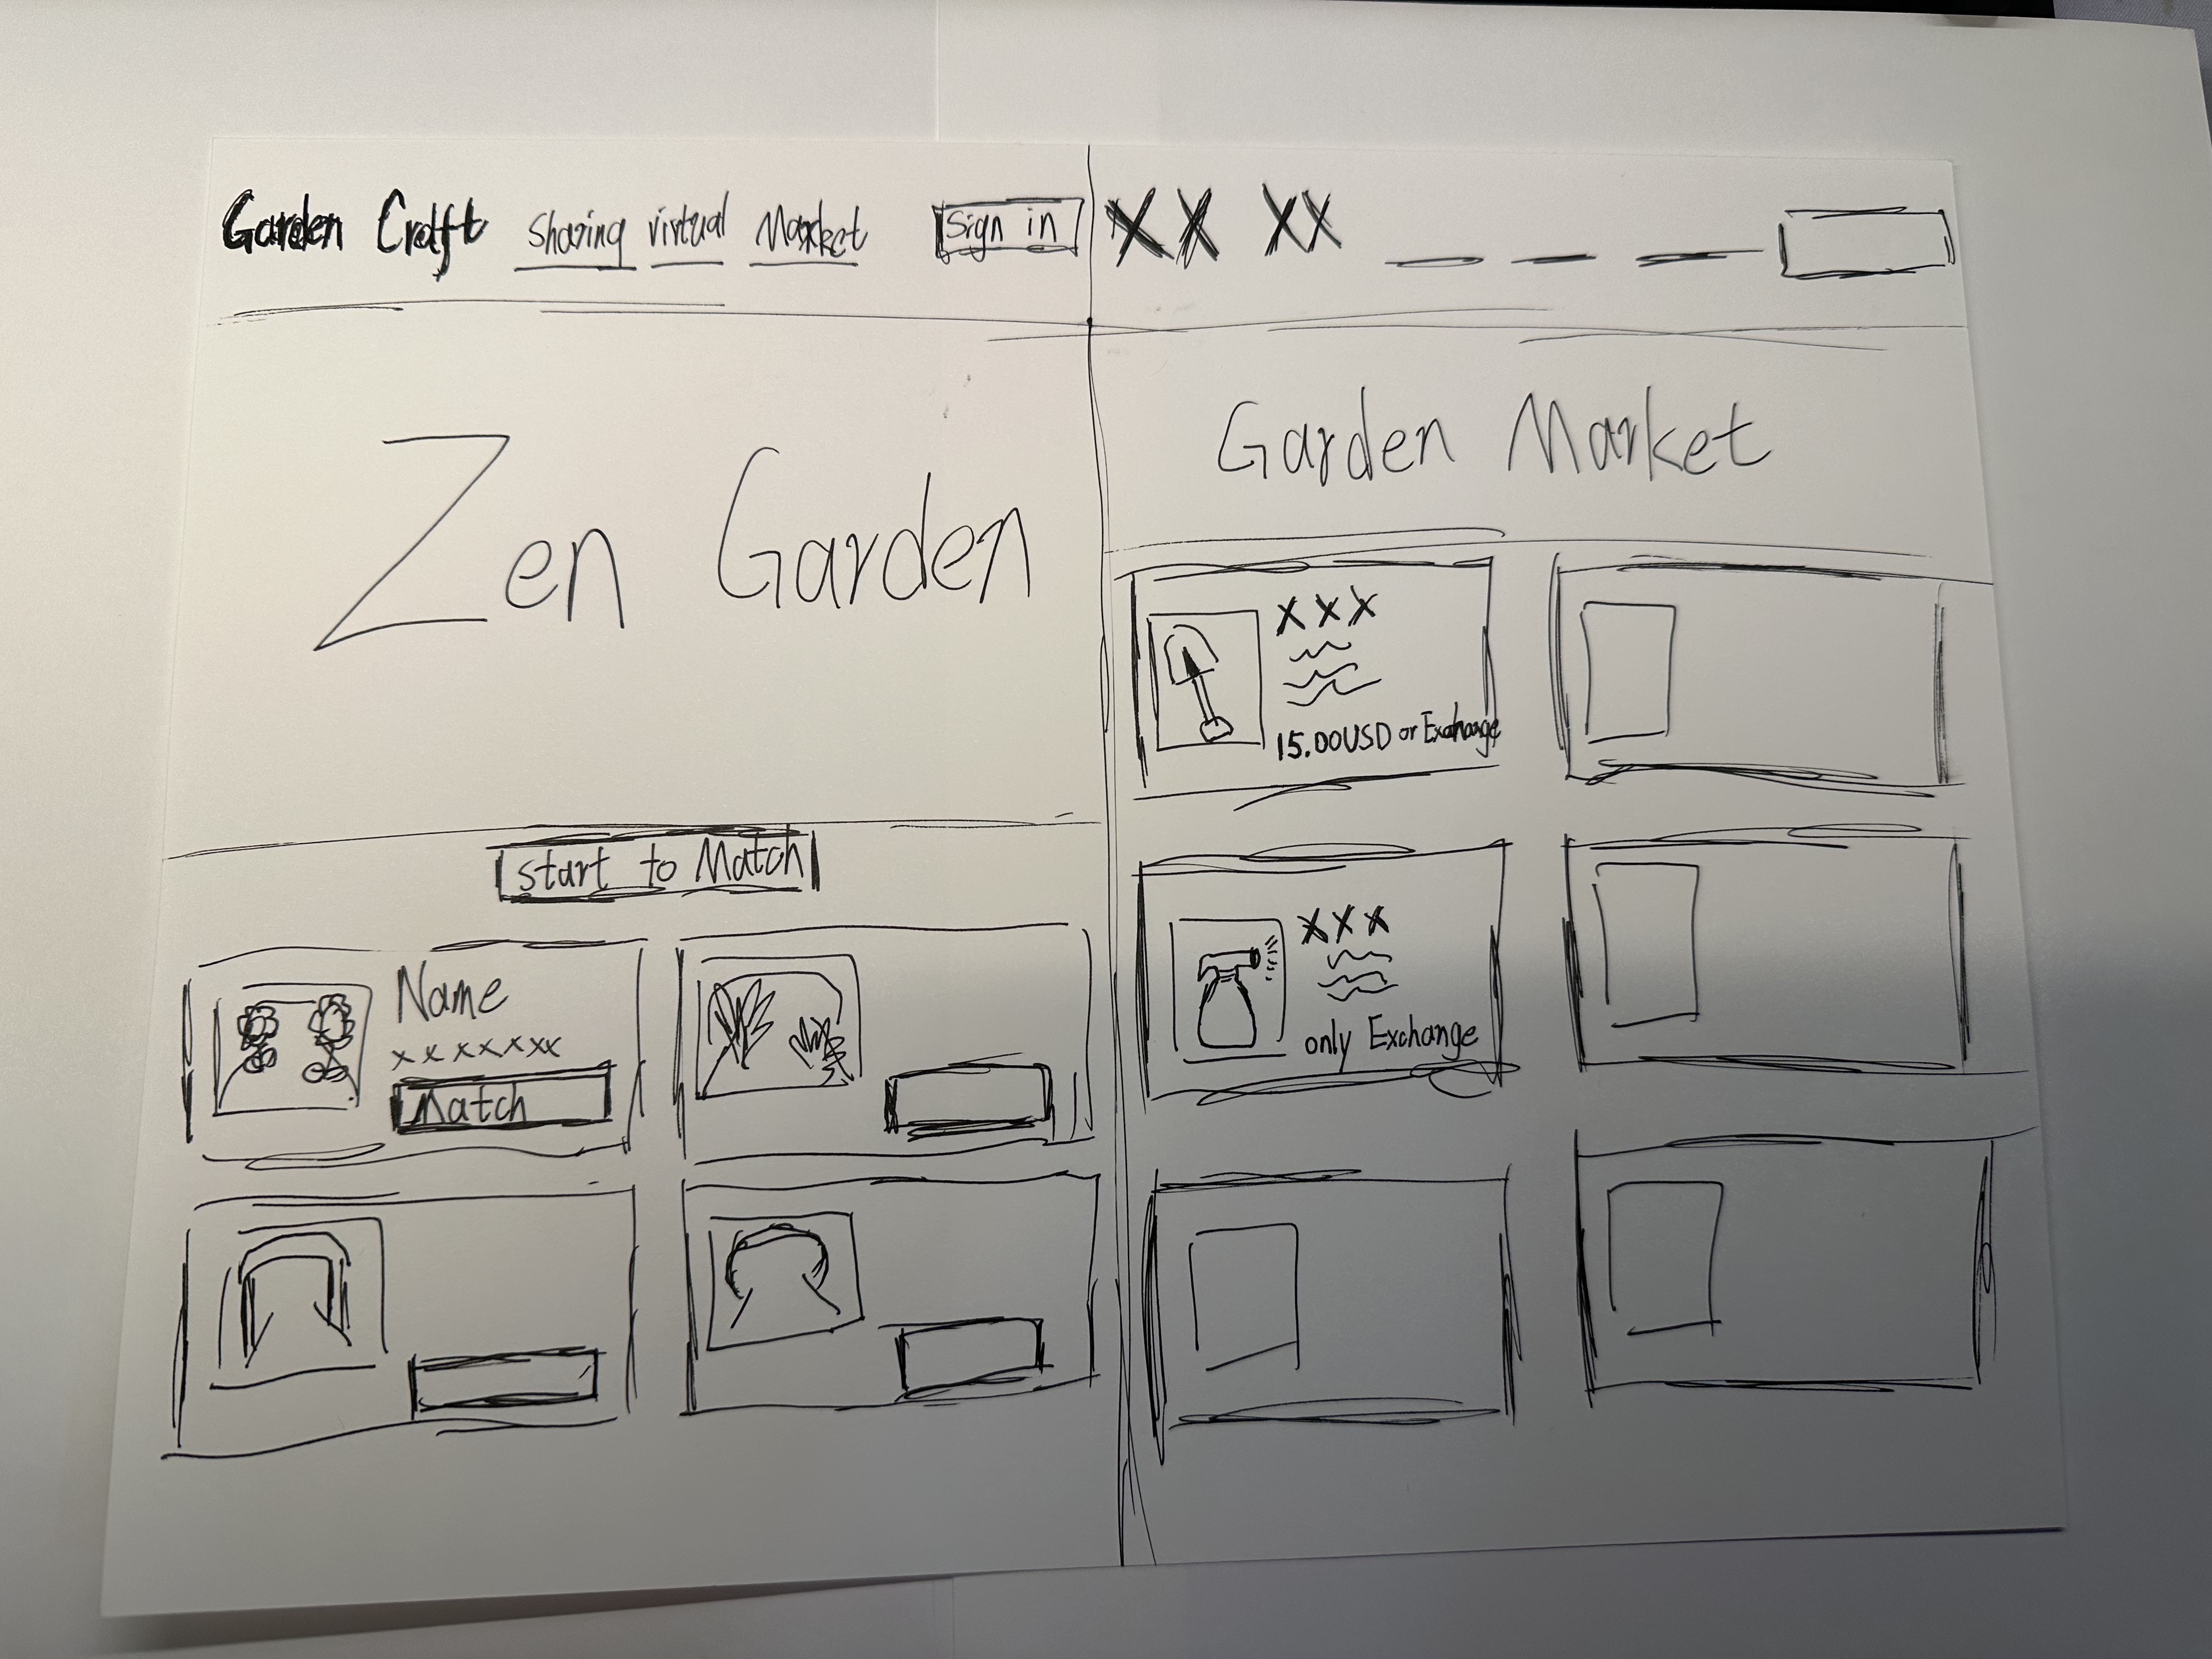 Garden Craft sharing virtual Market Sign in
Zen Garden
start to Match
Name
xxxxxxx
Match
XX XX
Garden Market
XXX
15.00USD or Exchange
XXX
only Exchange